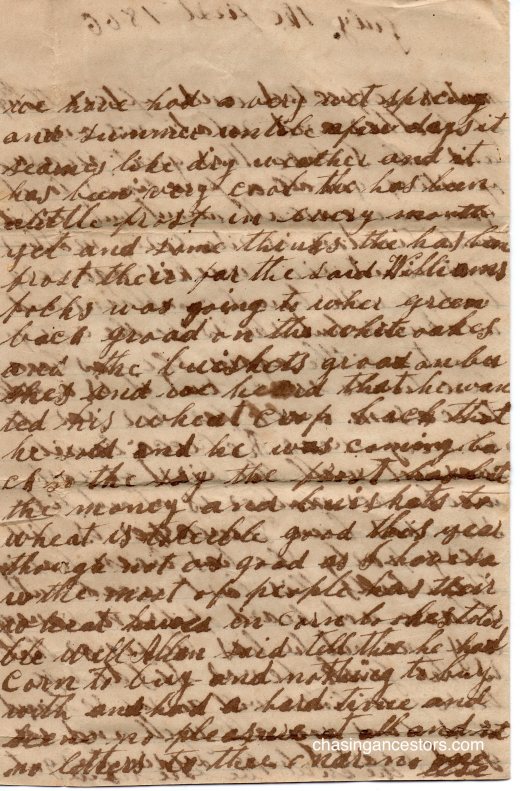 we have had a very wet spring
and summer untile a few days it
seames like dry weather and it
has been very cool the has ben
alittle frost in every month
yet and some thinks the has ben
frost their for the said Williams
folks was going to wher green
back groad on the white oakes
and the buishels groad on bu
shes and we heard that he wan
ted his wheat crop back that
he sold and he was coming ba
ck the the frost
the money and buishels to
wheat is tolerble good this year
though not as good as I have sa
w the most of people has their
wheat in corn lookes toler
ble well Allen said tell thee he had
Corn to buy and nothing to buy
with and had a hard time and
no pleasure at all and
no letters to thee
chasingancestors.com